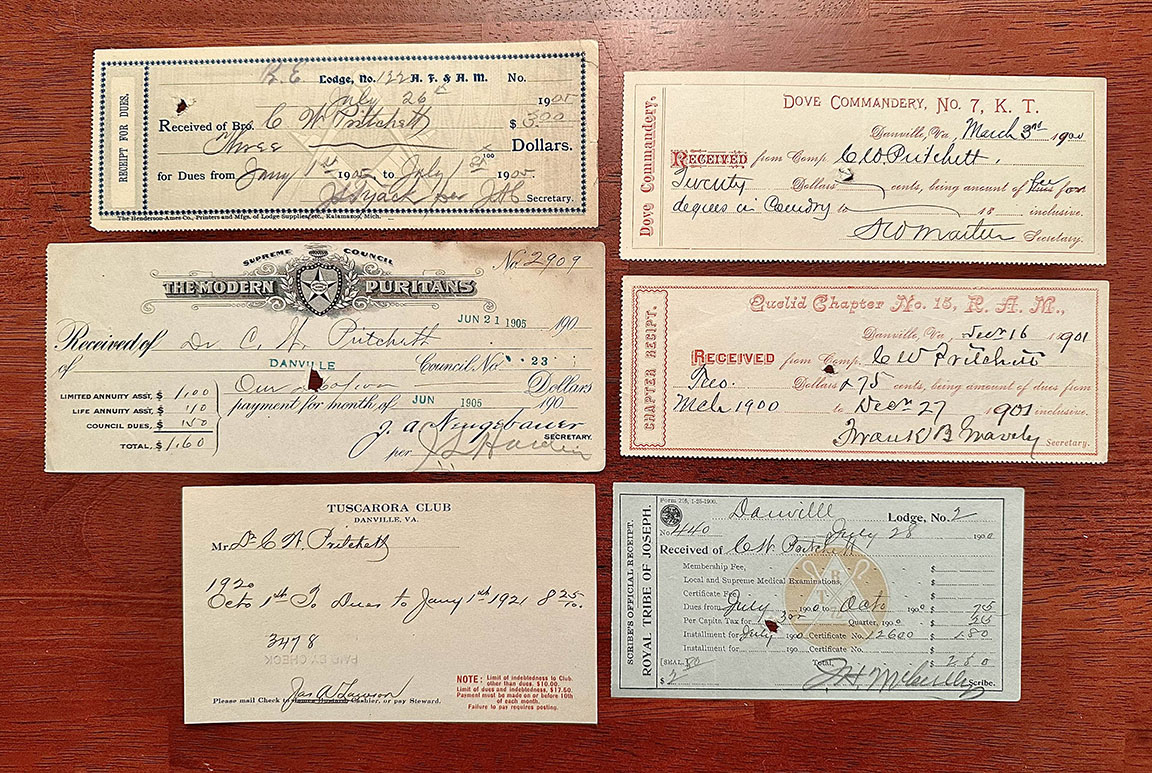 RECEIPT FOR DUES.
R. E. Lodge, No. 122 A. F. & A. M. No.
July 26th 1905
Received of Bro. C W Pritchett $ 3.00
Three 100 Dollars.
for Dues from Jany 1st 1905 to July 1st 1905.
per Secretary.
The Henderson-Ames Co., Printers and Mfgs. of Lodge Supplies, etc., Kalamazoo, Mich.
Dove Commandery.
DOVE COMMANDERY, NO. 7, K. T.
Danville, Va., March 3rd 1900
RECEIVED from Comp. C W Pritchett.
Twenty Dollars cents, being amount of for
degrees in to 18 inclusive.
Secretary.
SUPREME COUNCIL
THE MODERN PURITANS
No. 2909
JUN 21 1905 190
Received of Dr C. W. Pritchett
of DANVILLE Council No. 23
Dollars
payment for month of JUN 1905 190
LIMITED ANNUITY ASST, $ 1.00
LIFE ANNUITY ASST, $ .10
COUNCIL DUES, $ .50
TOTAL, $ 1.60
J. A. Neugebauer
SECRETARY.
per
CHAPTER RECEIPT.
Euclid Chapter No. 15, R. A. M.,
Danville, Va., Decr 16 1901
RECEIVED from Comp. C W Pritchett
Two. Dollars & 75 cents, being amount of dues from
Mch 1900 to Decr 27 1901 inclusive.
Frank B Gravely Secretary.
TUSCARORA CLUB
DANVILLE, VA.
Mr. Dr C W. Pritchett
1920
Octo 1st To Dues to Jany 1st 1921 8 25
3478
PAID BY CHECK
Jas A Lawson
Please mail Check to Cashier, or pay Steward.
NOTE: Limit of indebtedness to Club,
other than dues, $10.00.
Limit of dues and indebtedness, $17.50.
Payment must be made on or before 10th
of each month.
Failure to pay requires posting.
SCRIBE'S OFFICIAL RECEIPT.
ROYAL TRIBE OF JOSEPH.
Form 208, 1-25-1900.
Danville Lodge, No. 2
No. 440 July 28 1900
Received of C. W. Pritchett
Membership Fee, $
Local and Supreme Medical Examinations, $
Certificate Fee, $
Dues from July 1900 to Octo 1900 $ 75
Per Capita Tax for 3rd Quarter, 1900 $ 25
Installment for July 1900 Certificate No. 12600 $ 1.80
Installment for 190 Certificate No. $
[SEAL.] Total, $ 2.80
$ 2 80
Scribe.